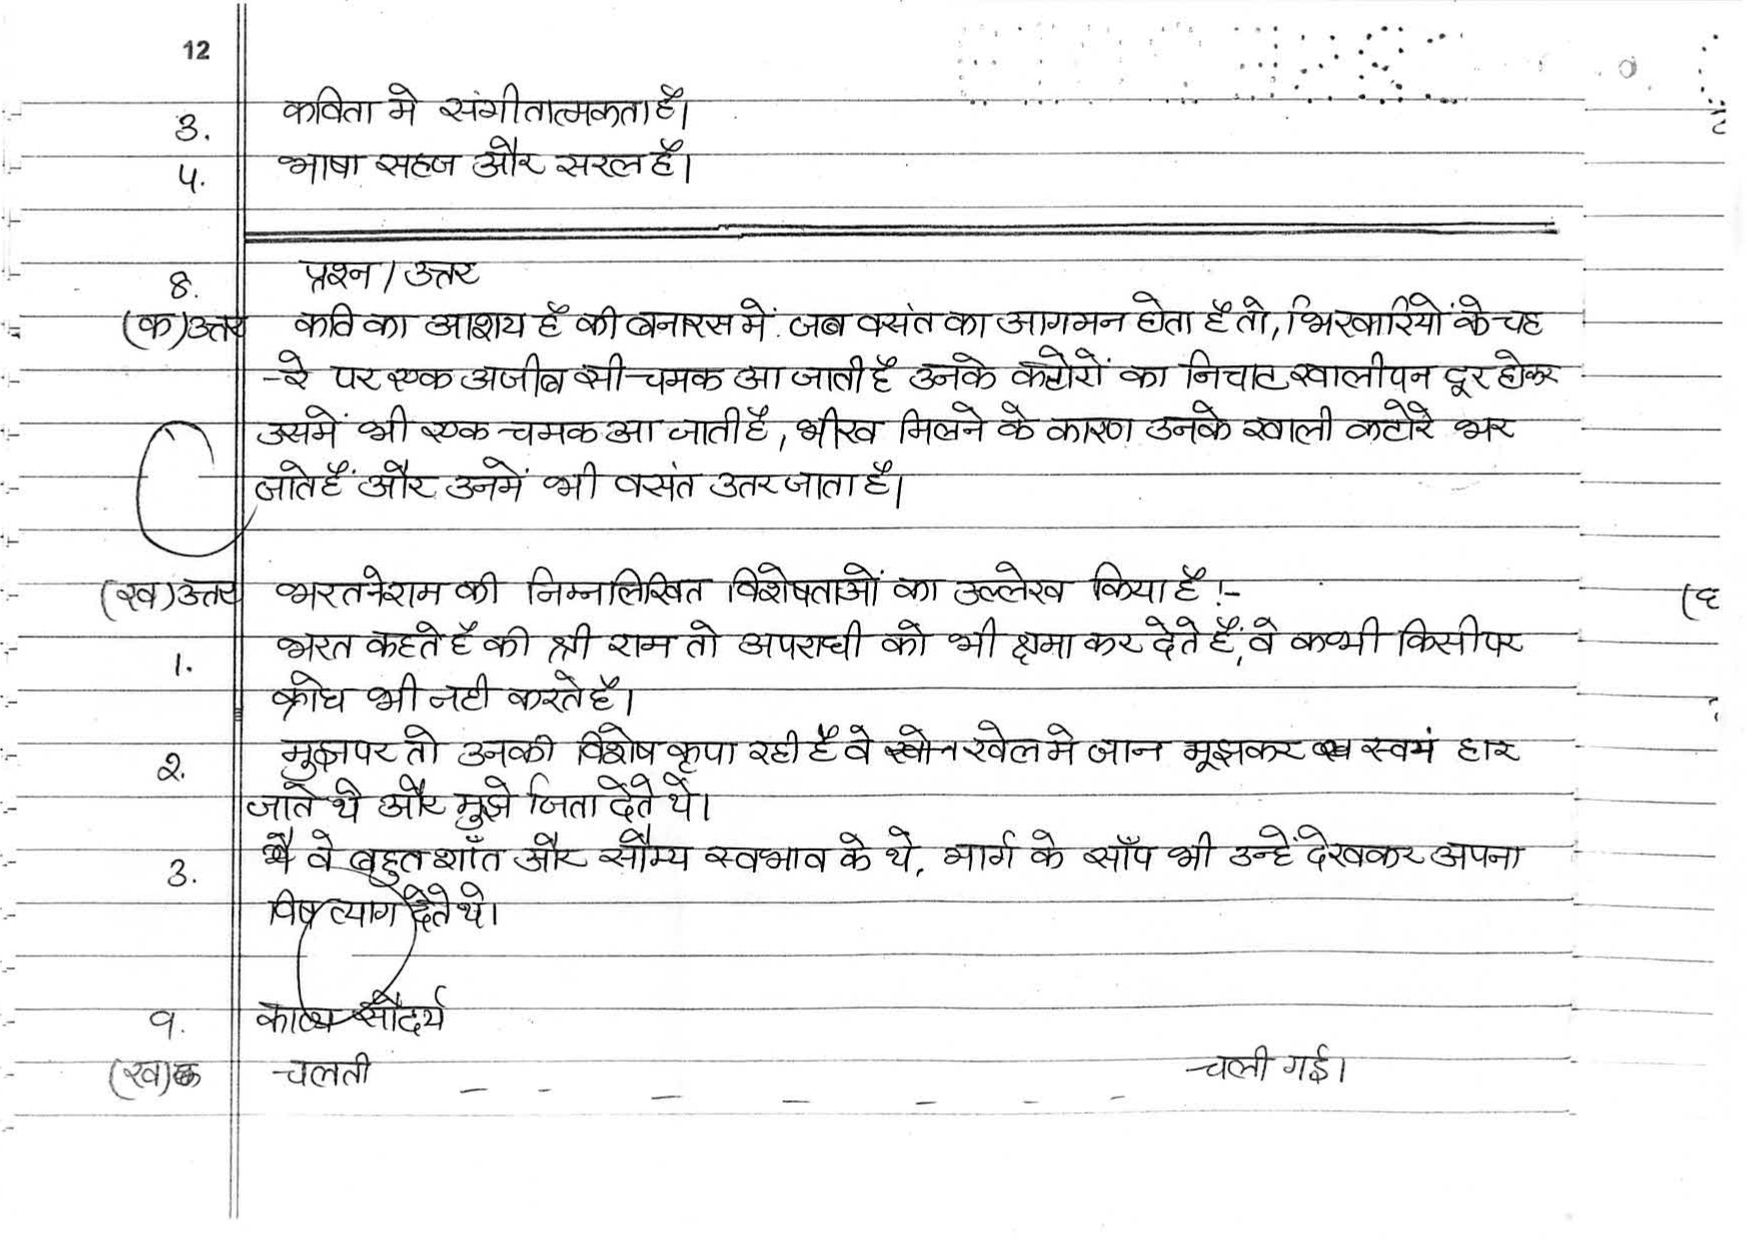 12
3. कविता मे संगीतात्मकता है।
4. भाषा सहज और सरल है।
8. प्रश्न / उत्तर
(क) उत्तर कवि का आशय है की बनारस में जब वसंत का आगमन होता है तो, भिखारियों के चह
-रे पर एक अजीब सी चमक आ जाती है उनके कटोरों का निचाट खालीपन दूर होकर
उसमें भी एक चमक आ जाती है, भीख मिलने के कारण उनके खाली कटोरे भर
जाते हैं और उनमें भी वसंत उतर जाता है।
(ख) उत्तर भरत ने राम की निम्नलिखित विशेषताओं का उल्लेख किया है !-
1. भरत कहते है की श्री राम तो अपराधी को भी क्षमा कर देते हैं, वे कभी किसी पर
क्रोध भी नही करते है।
2. मुझपर तो उनकी विशेष कृपा रही है वे खेल मे जान मूझकर स्वयं हार
जाते थे और मुझे जिता देते थे।
3. वे बहुत शाँत और सौम्य स्वभाव के थे, मार्ग के साँप भी उन्हें देखकर अपना
विष त्याग देते थे।
9. काव्य सौंदर्य
(ख) चलती _ _ _ _ _ _ _ चली गई।